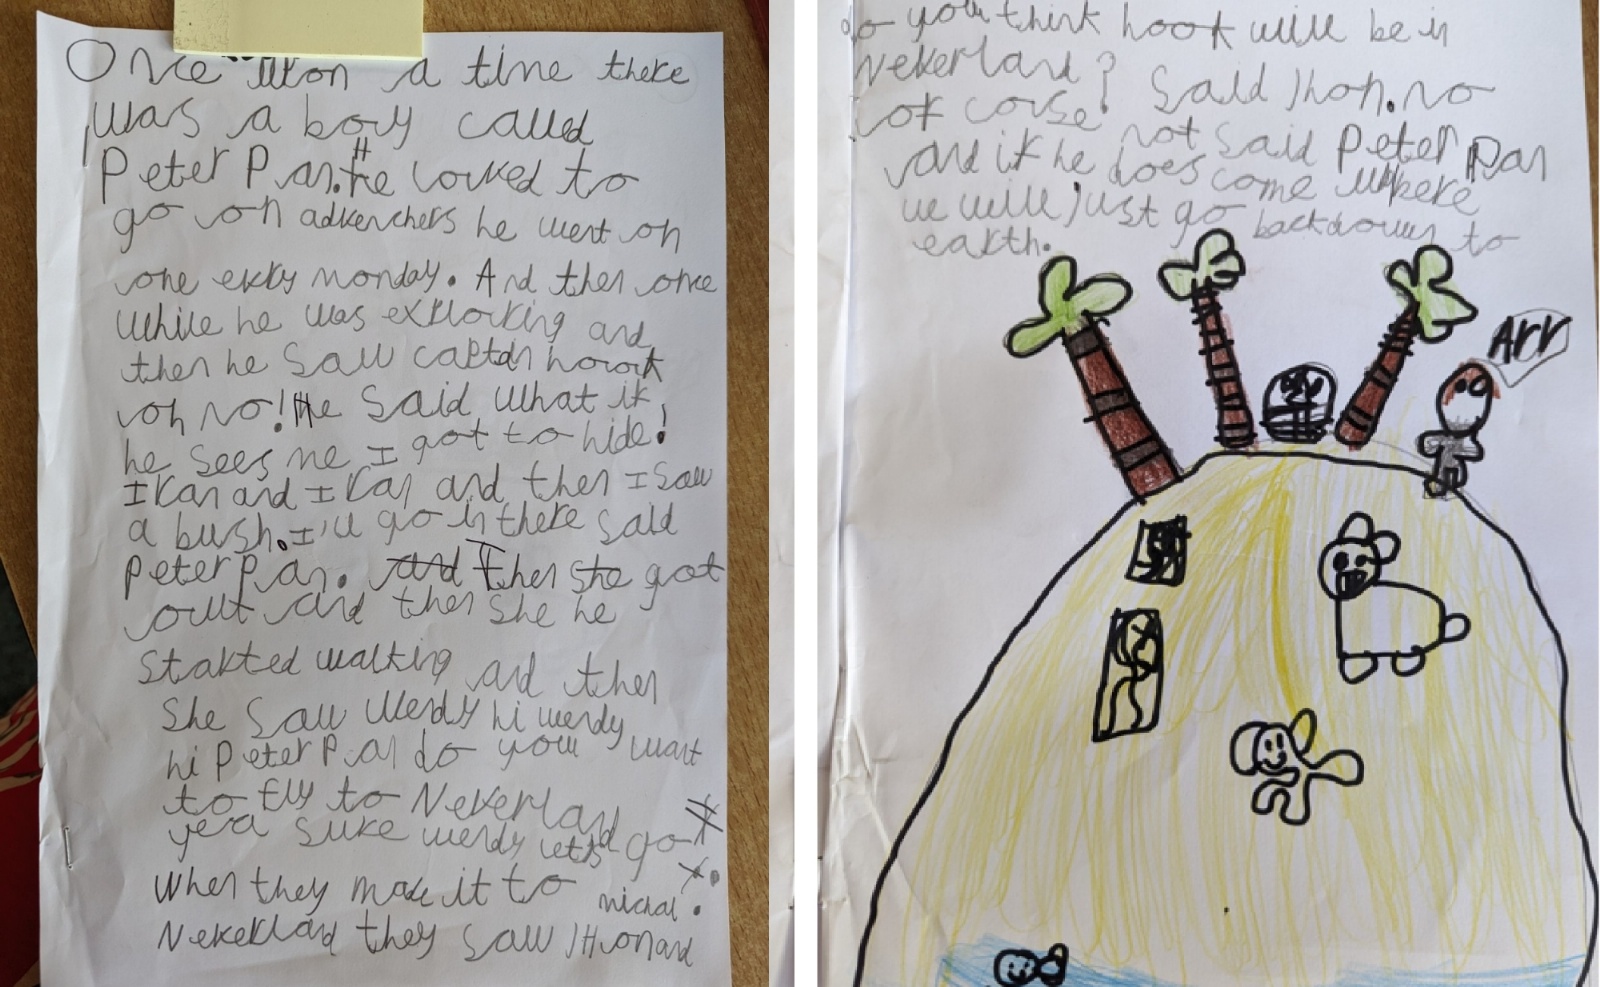 Once upon a time there
was a boy called
Peter Pan. He loved to
go on advenchers he went on
one evry monday. And then once
while he was exploring and
then he saw captan hook
oh no! He said what if
he sees me I got to hide!
I ran and I ran and then I saw
a bush. I'll go in there said
Peter Pan. and Then she got
out and then she he
started walking and then
she saw wendy hi wendy
hi Peter Pan do you want
to fly to Neverland
yea sure wendy lets go
When they made it to
Neverland they saw Jhon and
michal.
do you think hook will be in
Neverland? said Jhon. no
of corse not said Peter Pan
and if he does come where
we will just go back down to
earth.
Arr